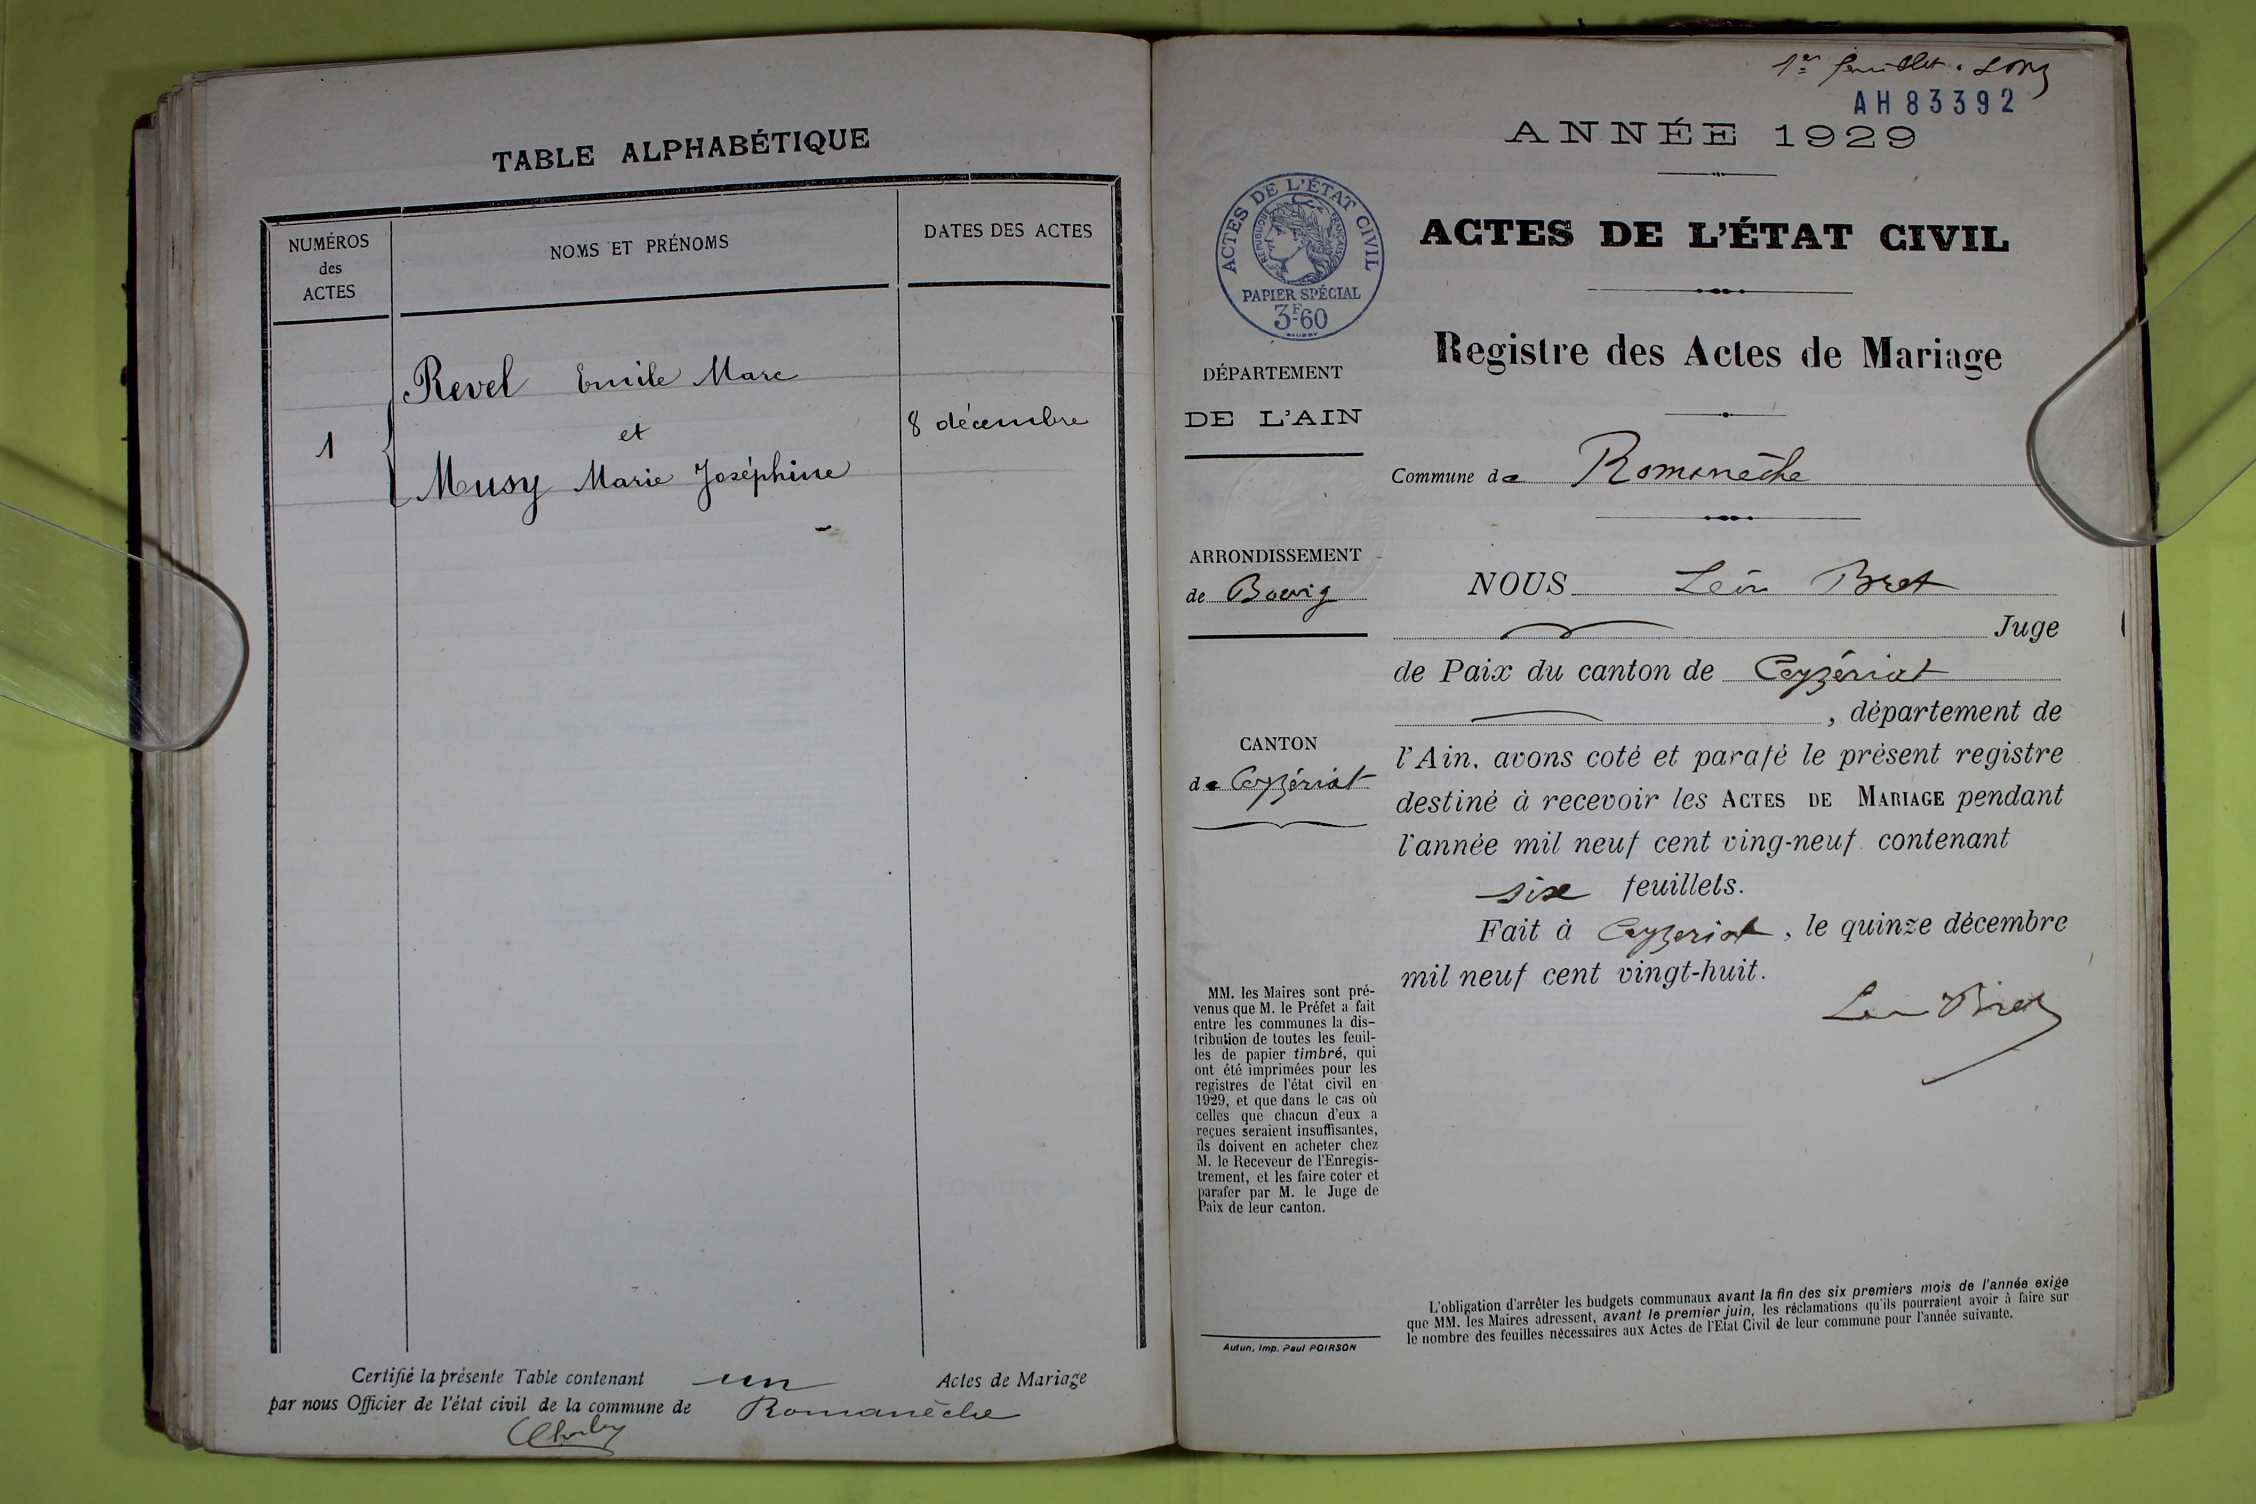 TABLE ALPHABÉTIQUE
NUMÉROS
des
ACTES
NOMS ET PRÉNOMS
DATES DES ACTES
Revel Emile Marc
1
et
8 décembre
Musy Marie Joséphine
Certifié la présente Table contenant un Actes de Mariage
par nous Officier de l'état civil de la commune de Romanèche
1er feuillet.
AH 83392
ANNÉE 1929
ACTES DE L'ÉTAT CIVIL
RÉPUBLIQUE FRANÇAISE
PAPIER SPÉCIAL
3F60
ACTES DE L'ÉTAT CIVIL
Registre des Actes de Mariage
DÉPARTEMENT
DE L'AIN
Commune de Romanèche
ARRONDISSEMENT
de Bourg
NOUS Léon Bret
Juge
de Paix du canton de Ceyzériat
, département de
CANTON
de Ceyzériat
l'Ain, avons coté et parafé le présent registre
destiné à recevoir les ACTES DE MARIAGE pendant
l'année mil neuf cent ving-neuf contenant
six feuillets.
Fait à Ceyzeriat, le quinze décembre
mil neuf cent vingt-huit.
Léon Bret
MM. les Maires sont pré-
venus que M. le Préfet a fait
entre les communes la dis-
tribution de toutes les feuil-
les de papier timbré, qui
ont été imprimées pour les
registres de l'état civil en
1929, et que dans le cas où
celles que chacun d'eux a
reçues seraient insuffisantes,
ils doivent en acheter chez
M. le Receveur de l'Enregis-
trement, et les faire coter et
parafer par M. le Juge de
Paix de leur canton.
Autun, Imp. Paul POIRSON
L'obligation d'arrêter les budgets communaux avant la fin des six premiers mois de l'année exige
que MM. les Maires adressent, avant le premier juin, les réclamations qu'ils pourraient avoir à faire sur
le nombre des feuilles nécessaires aux Actes de l'Etat Civil de leur commune pour l'année suivante.